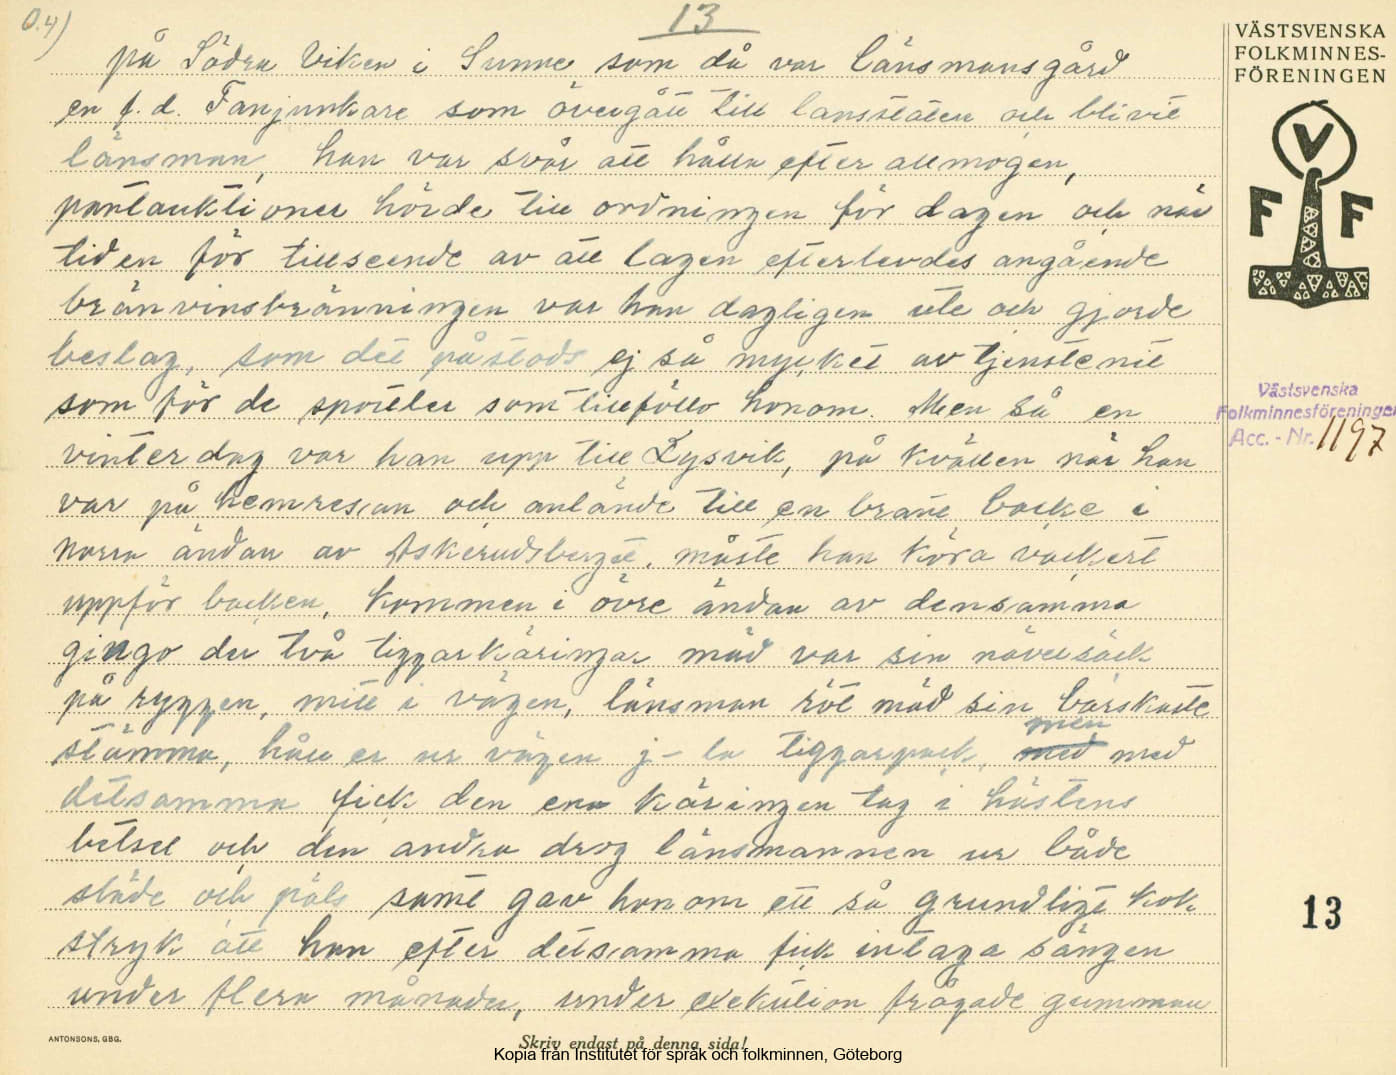 O.4)
13
på Södra Viken i Sunne som då var länsmansgård
en f.d. Fanjunkare som övergått till lansstaten och blivit
länsman, han var svår att hålla efter allmogen,
pantauktioner hörde till ordningen för dagen och när
tiden för tillseende av att lagen efterlevdes angående
brännvinsbränningen var han dagligen ute och gjorde
beslag, som det påstods ej så mycket av tjenstenit
som för de sportler som tillföllo honom. Men så en
vinterdag var han upp till Lysvik, på kvällen när han
var på hemresan och anlände till en brant backe i
norra ändan av Askerudsberget, måste han köra vackert
uppför backen, kommen i övre ändan av densamma
gingo der två tiggarkäringar mäd var sin näversäck
på ryggen, mitt i vägen, länsman röt mäd sin barskaste
stämma, håll er ur vägen j-la tiggarpack, men med
detsamma fick den ena käringen tag i hästens
betsel och den andra drog länsmannen ur både
släde och päls samt gav honom ett så grundligt kok
stryk att han efter detsamma fick intaga sängen
under flera månader, under exekution frågade gumman
VÄSTSVENSKA
FOLKMINNES-
FÖRENINGEN
V
F F
Västsvenska
Folkminnesföreningen
Acc. - Nr. 1197
13
ANTONSONS, GBG.
Skriv endast på denna sida!
Kopia från Institutet för språk och folkminnen, Göteborg